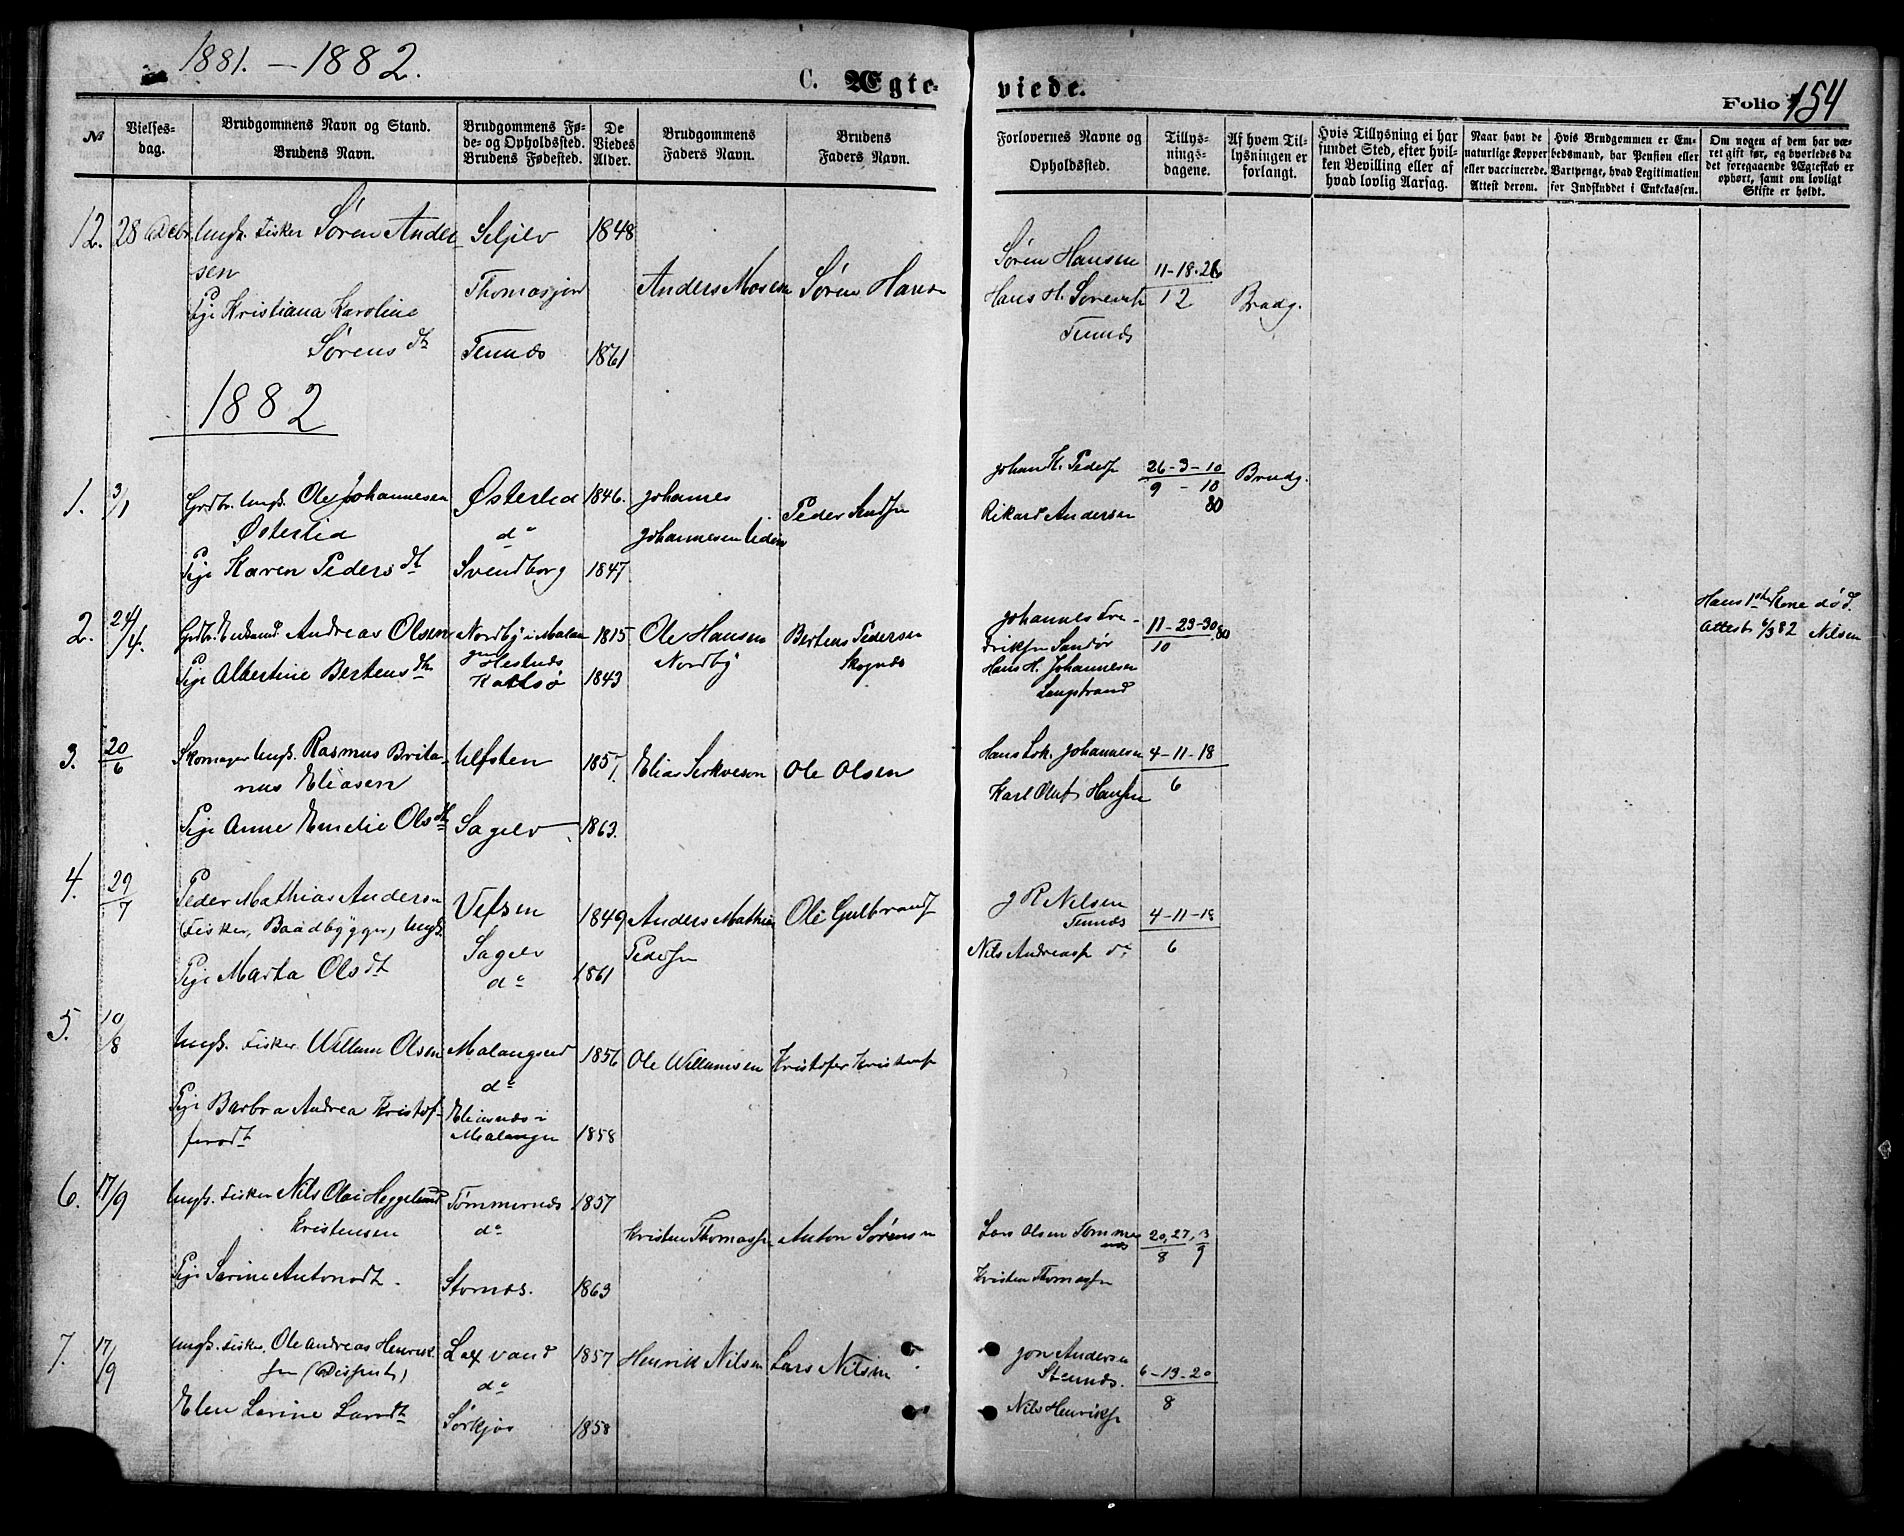 1881. – 1882.
C. Ægte-
viede.
Folio 154
№
Vielses-
dag.
Brudgommens Navn og Stand.
Brudens Navn.
Brudgommens Fø-
de- og Opholdssted.
Brudens Fødested.
De
Viedes
Alder.
Brudgommens
Faders Navn.
Brudens
Faders Navn.
Forlovernes Navne og
Opholdssted.
Tillys-
nings-
dagene.
Af hvem Til-
lysningen er
forlangt.
Hvis Tillysning ei har
fundet Sted, efter hvil-
ken Bevilling eller af
hvad lovlig Aarsag.
Naar havt de
naturlige Kopper
eller vaccinerede.
Attest derom.
Hvis Brudgommen er Em-
bedsmand, har Pension eller
Vartpenge, hvad Legitimation
for Indskuddet i Enkekassen.
Om nogen af dem har væ-
ret gift før, og hvorledes da
det foregaaende Ægteskab er
ophørt, samt om lovligt
Skifte er holdt.
12. 28 Decbr Ungk. Fisker Søren Ander-
sen
Pige Kristiana Karoline
Sørens dt
Seljelv
Thomasjord
Tennes
1848
1861
Anders Mosen
Søren Hansen
Søren Hansen
Hans H.
Tennes
11-18-26
12
Brudg.
1882
1. 3/1 Grdbr. Ungk. Ole Johannesen
Østerlid
Pige Karen Peders dt
Østerlid
do
Svendborg
1846.
1847
Johannes
Johannesen
Peder
Johan H. Peders
Rikard Andersen
26-3-10
9 - 10
80
Brudg.
2. 24/4. Grdbr. Enkemd. Andreas Olsen
Pige Albertine Bertens dtr
Nordby i Malan
gen Hestnes
Kattsø
1815
1843
Ole Hansen
Nordby
Bertens Pedersen
Skognes
Johannes Fre-
driksen Sandør
Hans H. Johannesen
Langstrand
11-23-30
10
80
Hans 1ste Kone død.
Attest 6/3 82 Nilsen
3. 20/6 Skomager Ungk. Rasmus Brita-
nus Eliasen
Pige Anne Emelie Ols dtr
Ulfsten
Sagelv
1857
1863.
Elias
Ole Olsen
Hans Johannesen
Karl Oluf Hansen
4-11-18
6
4. 29/7 Peder Mathias Andersn
(Fisker, Baadbygger) Ungk.
Pige Marta Olsdt
Vefsen
Sagelv
do
1849
1861
Anders Mathias
Peders
Ole Gulbrands
J R Nilsen
Tennes
Nils Andreass do
4-11-18
6
5. 10/8 Ungk. Fisker Willum Olsen
Pige Barbra Andrea Kristof-
fersdt
Malangseid
do
Eliasnes i
Malangen
1856
1858
Ole Willumsen
Kristofer Kristens
6. 17/9 Ungk. Fisker Nils Olai Heggelund
Kristensen
Pige Sarine Antonsdt.
Tømmernes
do
Stornes.
1857
1863
Kristen Thomass
Anton Sørensn
Lars Olsen Tømmer
nes
Kristen Thomass
20, 27, 3
8 9
7. 17/9 Ungk. Fisker, Ole Andreas Henrik-
sen (Dissent)
Elen Larine Larsdt
Laxvand
do
Sørkjos
1857
1858
Henrik Nilsen
Lars Nilsen
Jon Andersen
Nils Henriks
6-13-20
8